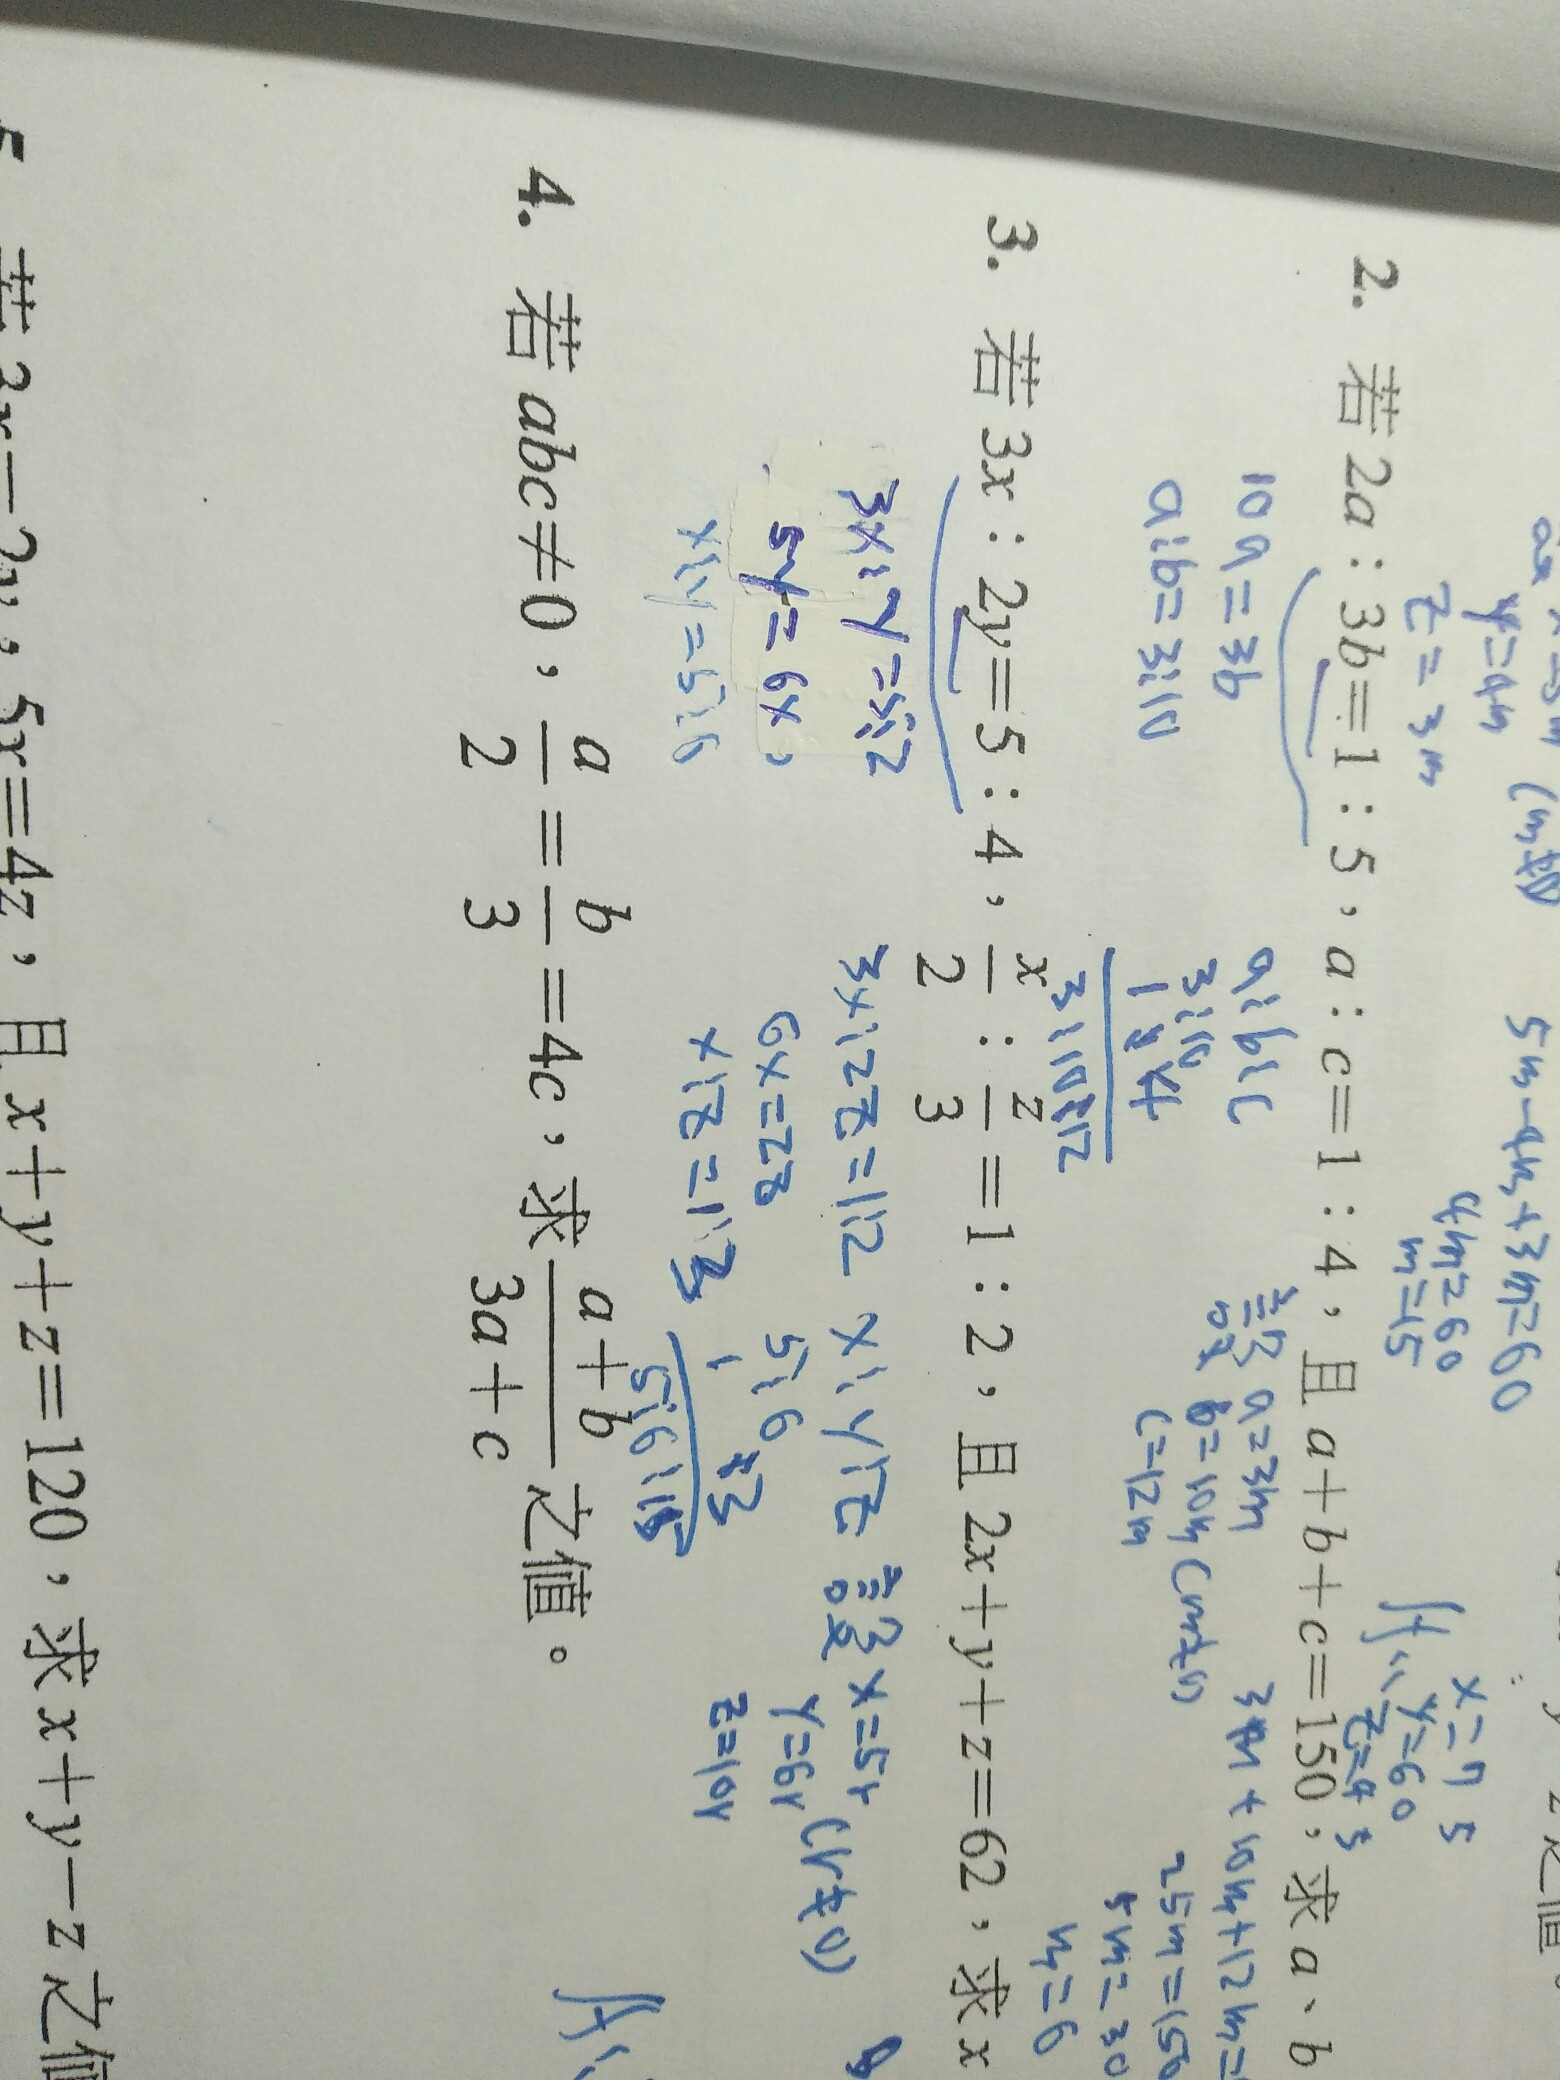 y=4m
z=3m
5m-4m+3m=60
4m=60
m=15
x=75
y=60
z=45
2. 若2a:3b=1:5,a:c=1:4,且a+b+c=150,求a、b
10a=3b
a:b=3:10
a:b:c
3:10
1 : 4
3:10:12
設 a=3m
b=10m (m≠0)
c=12m
3m+10m+12m=
25m=150
5m=30
m=6
3. 若3x:2y=5:4,x/2:z/3=1:2,且2x+y+z=62,求x
3x:y=5:2
5y=6x
x:y=5:6
3x:2z=1:2
6x=2z
x:z=1:3
x:y:z
5:6
1 : 3
5:6:15
設 x=5r
y=6r (r≠0)
z=10r
4. 若abc≠0,a/2=b/3=4c,求(a+b)/(3a+c)之值。
5. 若3x-2y:5x=4z,且x+y+z=120,求x+y-z之值